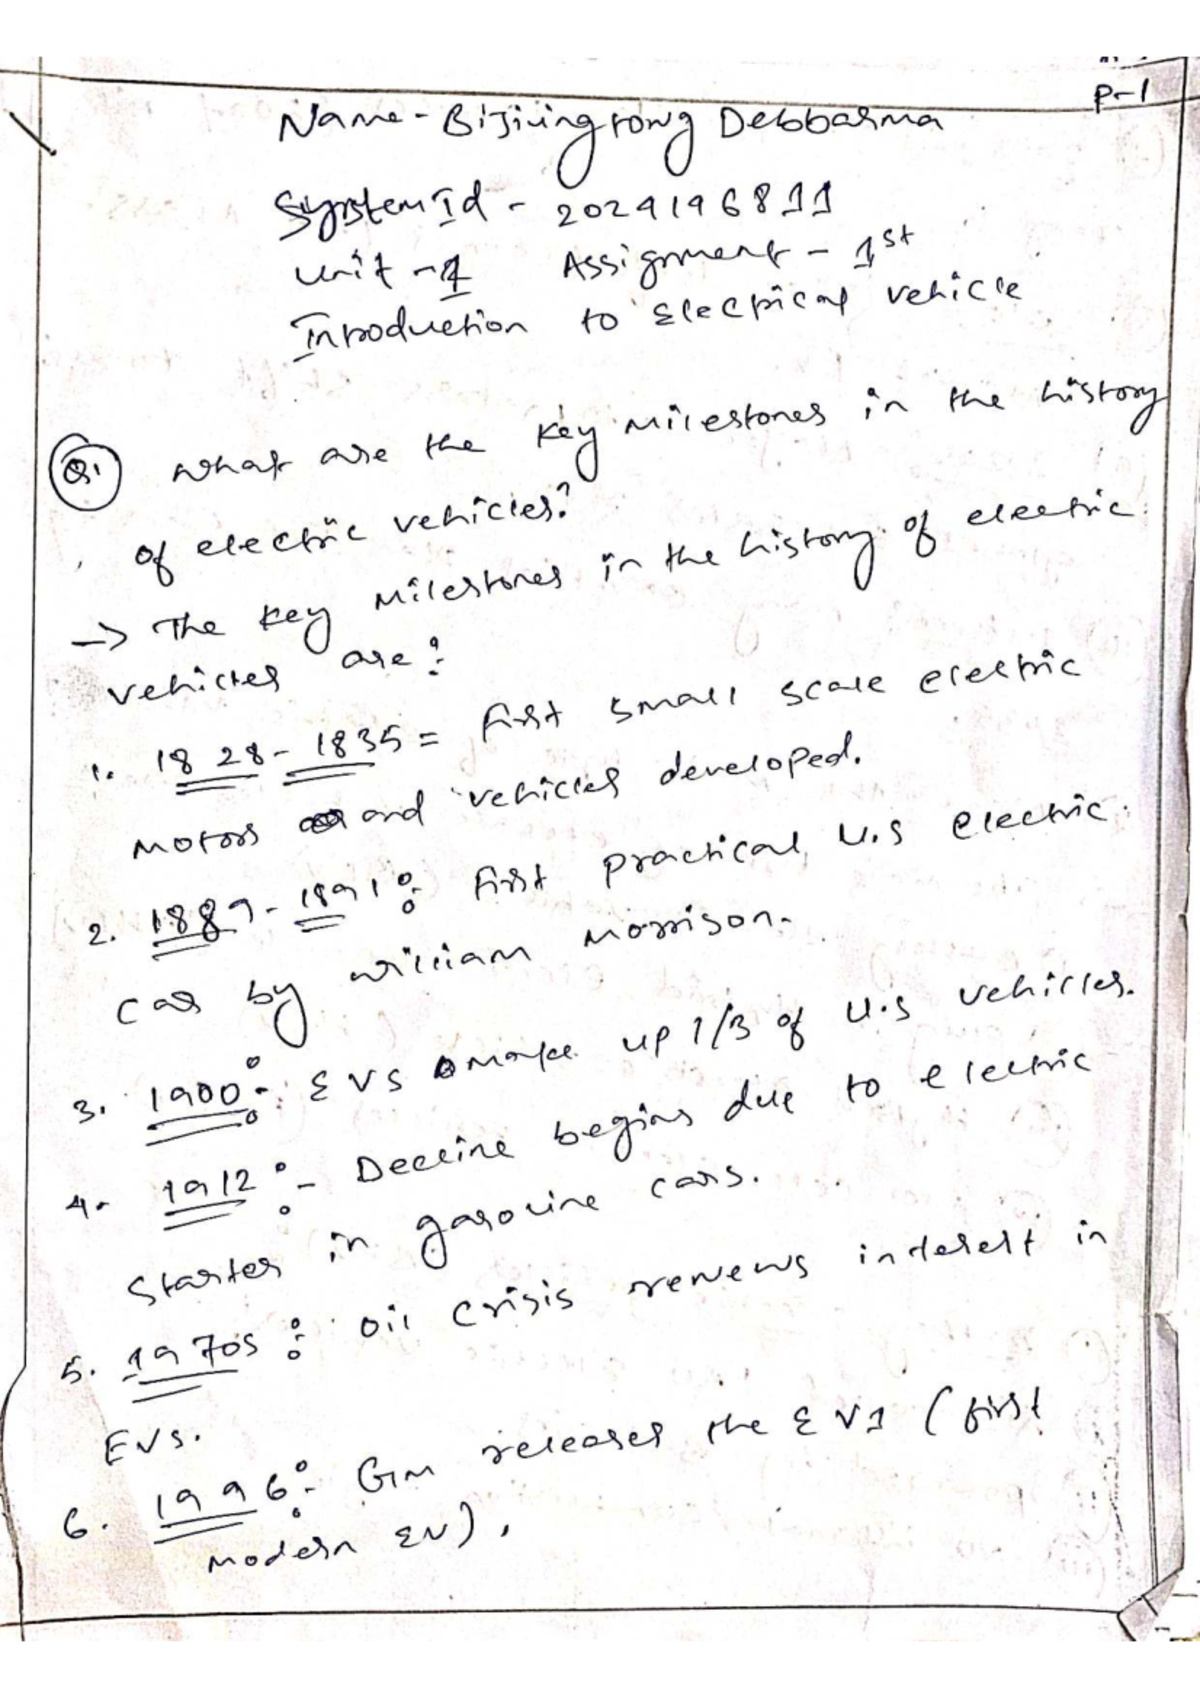 P-1
Name - Bijiingrong Debbarma
System Id - 2024196811
Unit - 1 Assignment - 1st
Introduction to Electrical vehicle
Q1 What are the key milestones in the history
of electric vehicles?
-> The key milestones in the history of electric
vehicles are :
1. 1828 - 1835 = first small scale electric
motors and vehicles developed.
2. 1889 - 1891 : first practical U.S electric
car by william Morrison.
3. 1900 :- EVS make up 1/3 of U.S vehicles.
4. 1912 :- Decline begins due to electric
starter in gasoline cars.
5. 1970s : oil crisis renews interest in
EVs.
6. 1996 :- GM releases the EV1 (first
modern EV).